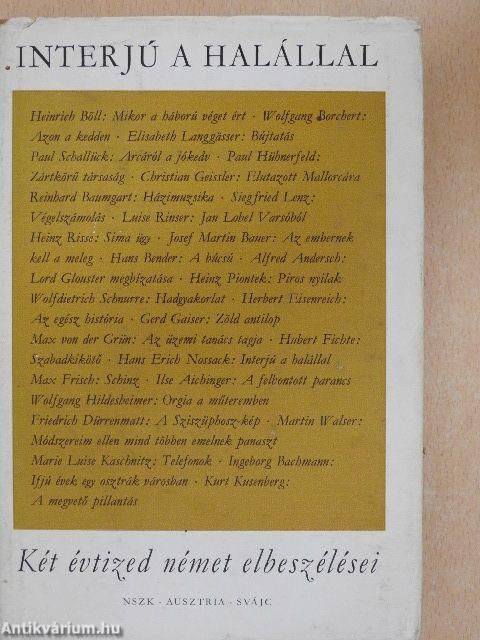 INTERJÚ A HALÁLLAL
Heinrich Böll: Mikor a háború véget ért · Wolfgang Borchert:
Azon a kedden · Elisabeth Langgässer: Bújtatás
Paul Schallück: Arcáról a jókedv · Paul Hühnerfeld:
Zártkörű társaság · Christian Geissler: Elutazott Mallorcára
Reinhard Baumgart: Házimuzsika · Siegfried Lenz:
Végelszámolás · Luise Rinser: Jan Lobel Varsóból
Heinz Risse: Sima ügy · Josef Martin Bauer: Az embernek
kell a meleg · Hans Bender: A búcsú · Alfred Andersch:
Lord Glouster megbízatása · Heinz Piontek: Piros nyilak
Wolfdietrich Schnurre: Hadgyakorlat · Herbert Eisenreich:
Az egész história · Gerd Gaiser: Zöld antilop
Max von der Grün: Az üzemi tanács tagja · Hubert Fichte:
Szabadkikötő · Hans Erich Nossack: Interjú a halállal
Max Frisch: Schinz · Ilse Aichinger: A felbontott parancs
Wolfgang Hildesheimer: Orgia a műteremben
Friedrich Dürrenmatt: A Sziszüphosz-kép · Martin Walser:
Módszereim ellen mind többen emelnek panaszt
Marie Luise Kaschnitz: Telefonok · Ingeborg Bachmann:
Ifjú évek egy osztrák városban · Kurt Kusenberg:
A megvető pillantás
Két évtized német elbeszélései
NSZK · AUSZTRIA · SVÁJC
Antikvárium.hu